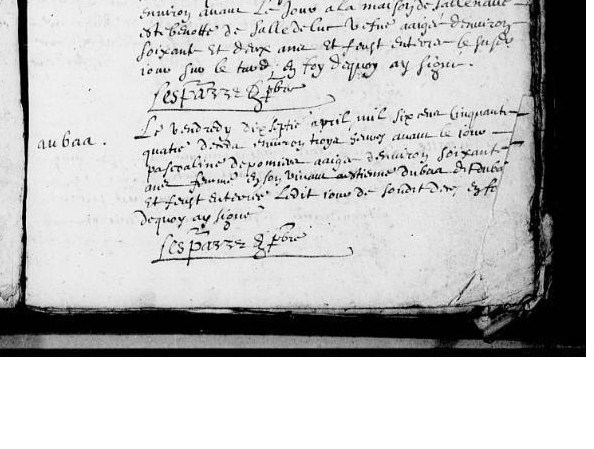 environ avant le jour a la maison de Sallenave
este benotte de Salledeluc vefue aaigee denviron
soixant et deux ans et feust enterree le susd
jour sur le tard en foy dequoy ay signe.
Lespazze pbre
aubaa.
Le vendredy dixseptie apvril mil six cens cinquante
quatre deceda environ troys heures avant le jour
pascaline depomiers aaigee denviron soixante
ans femme en son vivant destienne dubaa dit duba
et feust enterree ledit jour de son dit deces en foy
dequoy ay signe
Lespazze pbre